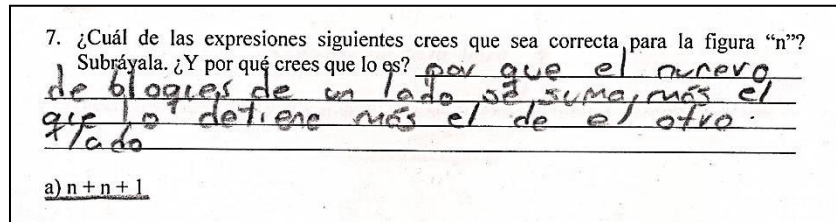 7. ¿Cuál de las expresiones siguientes crees que sea correcta para la figura “n”?
Subráyala. ¿Y por qué crees que lo es? por que el numero
de bloques de un lado se suma, más el
que lo detiene más el de el otro.
lado
a) n + n + 1